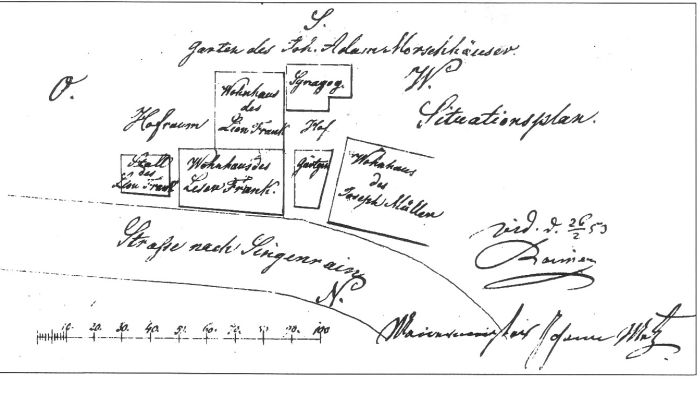 S.
Garten des Joh. Adam Morschhäuser.
O.
W.
Situationsplan.
Wohnhaus
des
Lion Frank
Synagog.
Hofraum
Hof.
Stall
des
Lion Frank
Wohnhaus des
Leser Frank.
Gärtgen
Wohnhaus
des
Joseph Müller
Straße nach Singenrain
N.
vid. d. 26/2 53
10. 20. 30. 40. 50. 60. 70. 80. 90. 100
Johann Metz